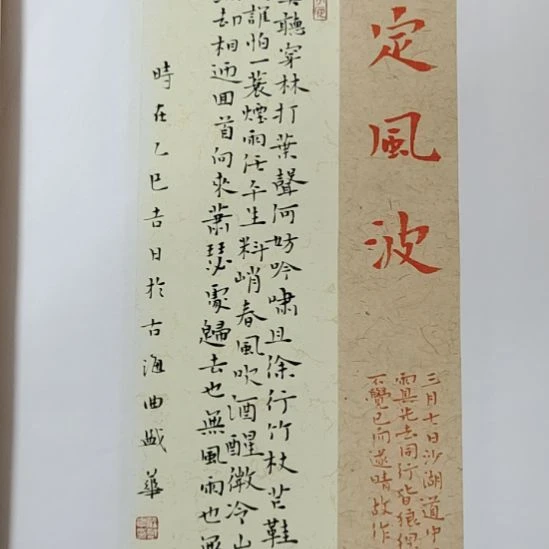 定風波
三月七日沙湖道中
雨具先去同行皆狼狽
不覺已而遂晴故作
聽穿林打葉聲何妨吟嘯且徐行竹杖芒鞋
誰怕一蓑煙雨任平生料峭春風吹酒醒微冷山
却相迎回首向來蕭瑟處歸去也無風雨也無
時在乙巳吉日於古海曲華